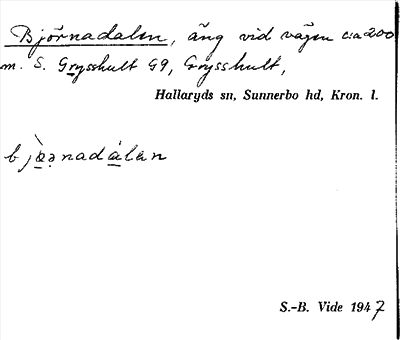 Björnadalen, äng vid vägen c:a 200
m. S. Grysshult G9, Grysshult,
Hallaryds sn, Sunnerbo hd, Kron. l.
S.-B. Vide 1947